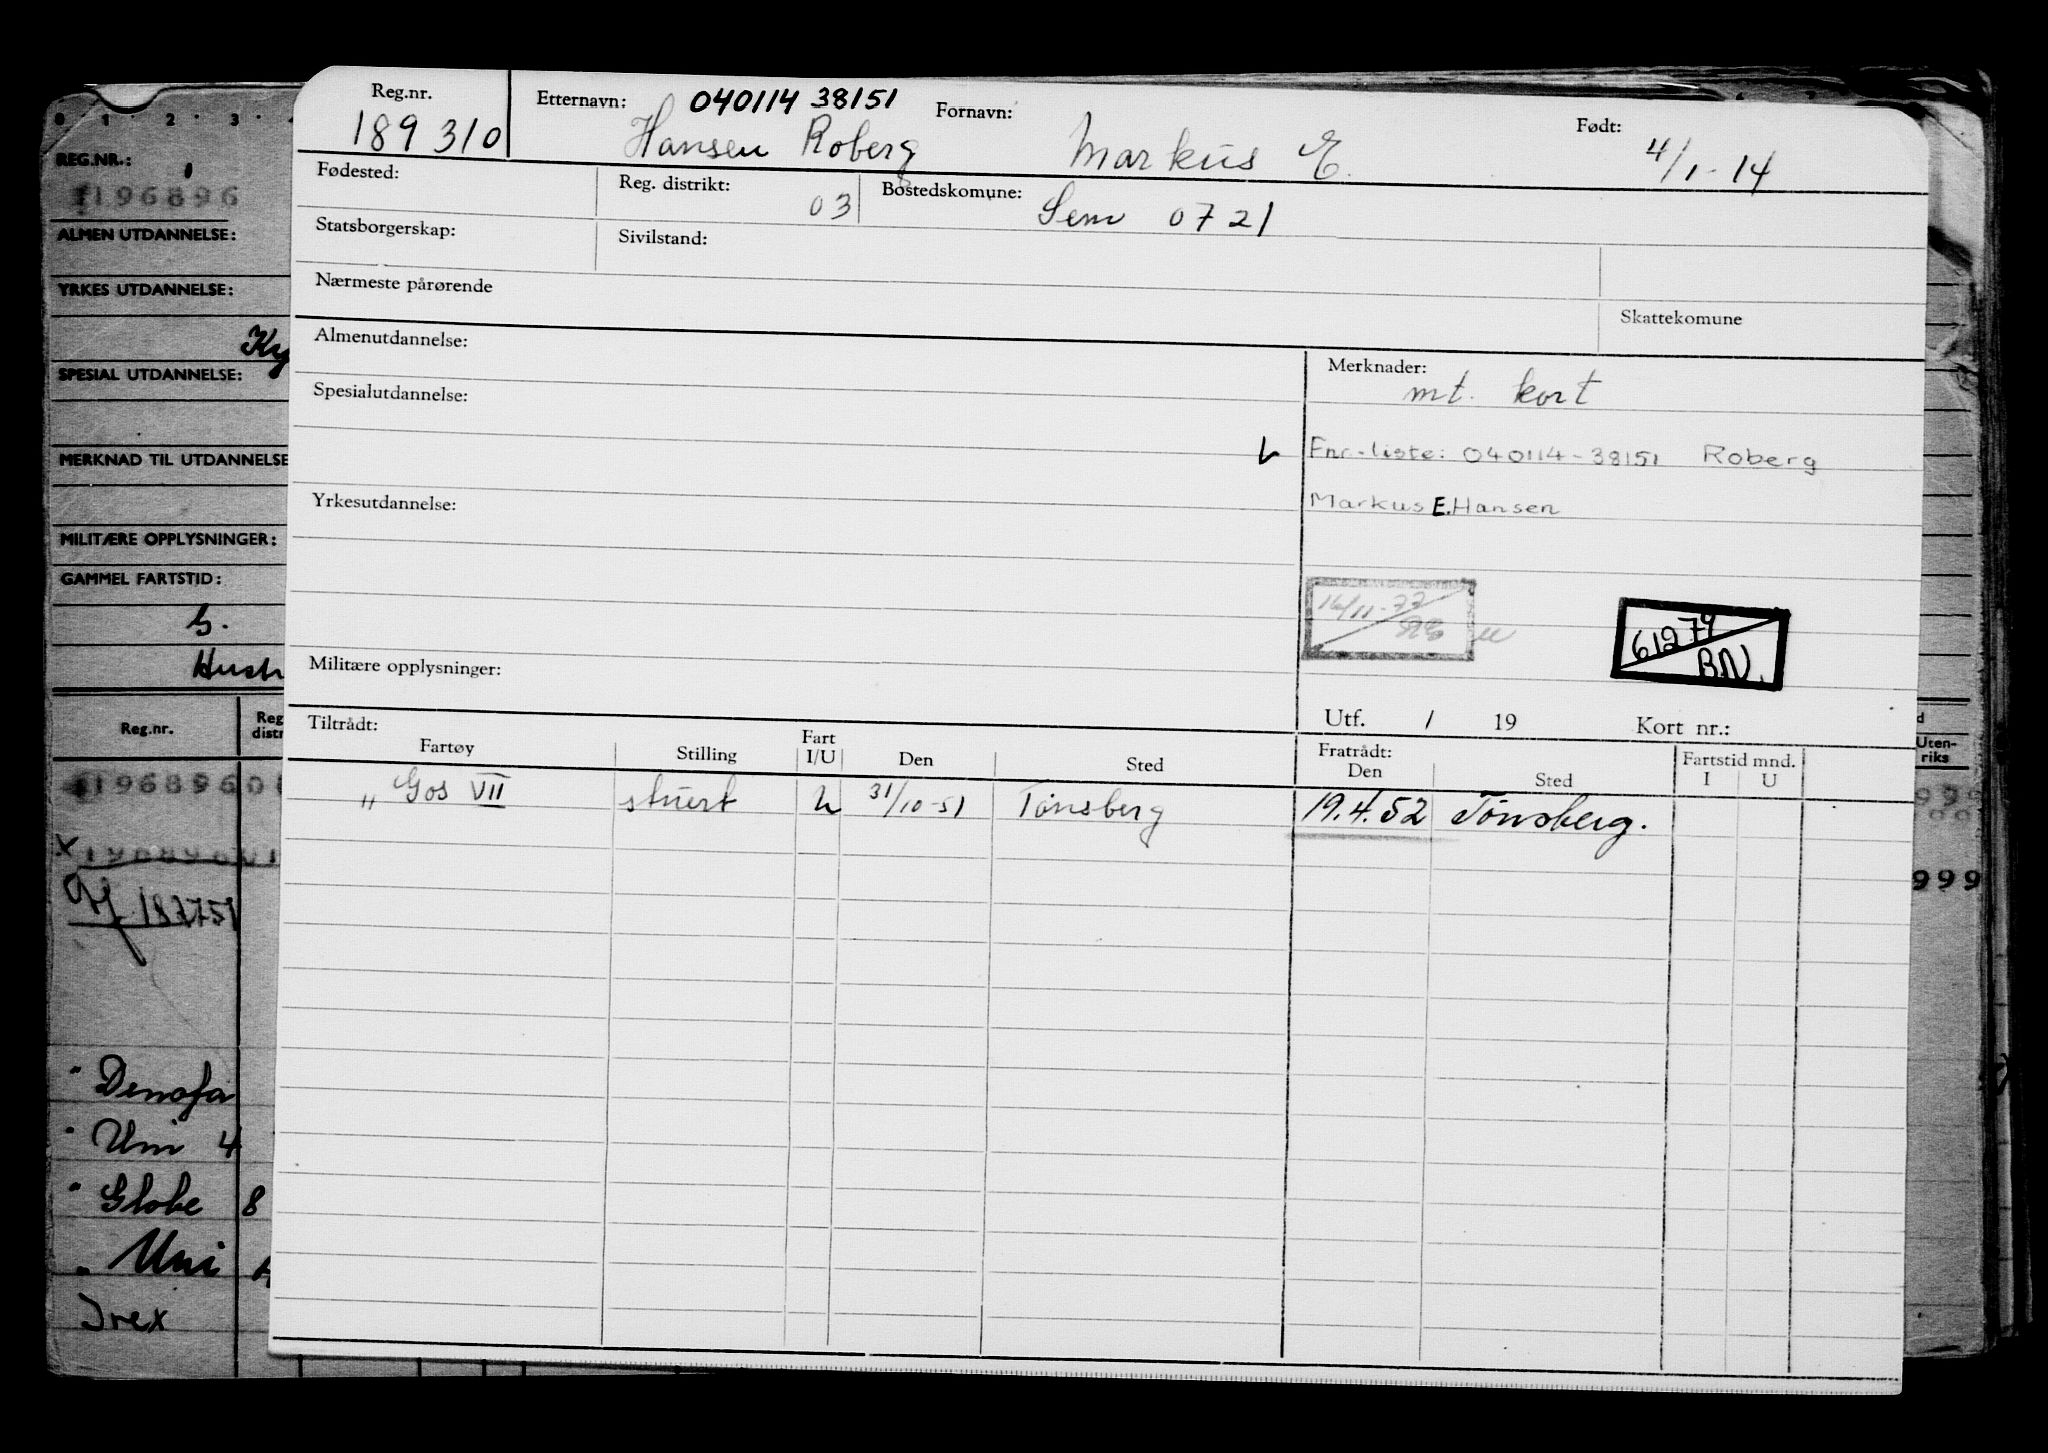 Reg.nr. Etternavn: 040114 38151 Fornavn: Født:
189 310 Hansen Roberg Markus E. 4/1-14
Fødested: Reg. distrikt: 03 Bostedskomune: Sem 0721
Statsborgerskap: Sivilstand:
Nærmeste pårørende
Skattekomune
Almenutdannelse: Merknader:
mt. kort
Spesialutdannelse:
Fnr-liste: 040114-38151 Roberg
Yrkesutdannelse: Markus E. Hansen
14/11-77
61279
BN.
Militære opplysninger:
Utf. / 19 Kort nr.:
Tiltrådt: Fratrådt: Fartstid mnd.
Fartøy Stilling Fart I/U Den Sted Den Sted I U
„ Gos VII stuert U 31/10-51 Tønsberg 19.4.52 Tönsberg.
0 1 2 3
REG.NR.:
196896
ALMEN UTDANNELSE:
YRKES UTDANNELSE:
Ky
SPESIAL UTDANNELSE:
MERKNAD TIL UTDANNELSE
MILITÆRE OPPLYSNINGER:
GAMMEL FARTSTID:
G.
Hush
Reg.nr. Reg distr
196896 0
x 196896 01
187751
" Denofa
" Uni 4
" Globe 8
„ Uni
Irex
d
Uten-
riks
999
999